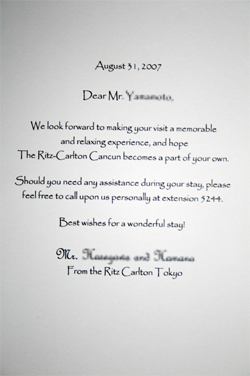 August 31, 2007
Dear Mr. Yamamoto,
We look forward to making your visit a memorable
and relaxing experience, and hope
The Ritz-Carlton Cancun becomes a part of your own.
Should you need any assistance during your stay, please
feel free to call upon us personally at extension 5244.
Best wishes for a wonderful stay!
Mr. and
From the Ritz Carlton Tokyo